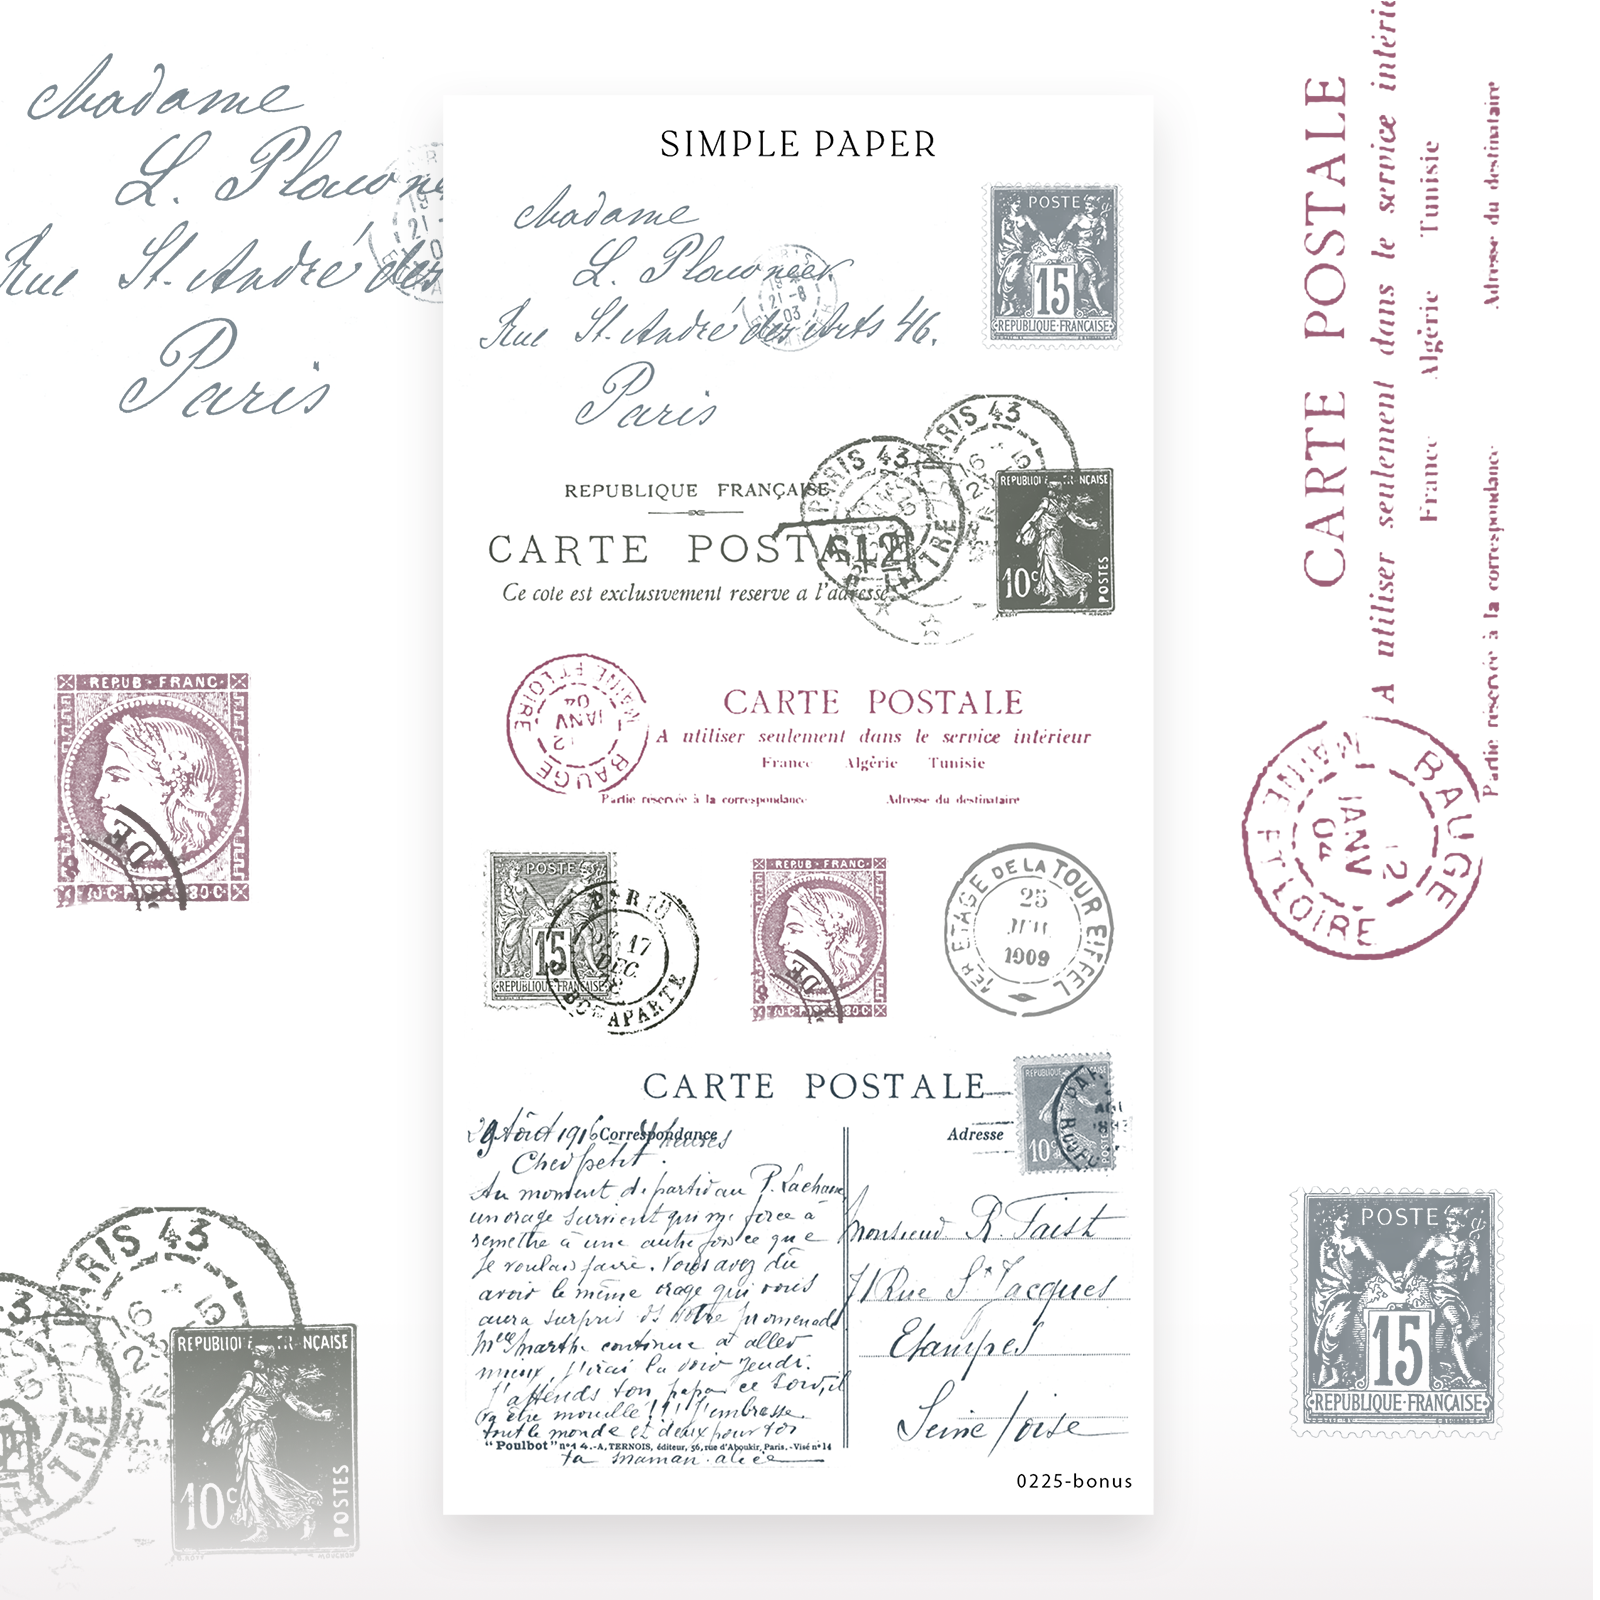 SIMPLE PAPER
Madame
L. Plauoneer
Rue St. André des Arts 46.
Paris
PARIS
19
21-8
03
POSTE
15
REPUBLIQUE·FRANÇAISE
REPUBLIQUE FRANÇAISE
CARTE POSTALE
Ce cote est exclusivement reserve a l'adresse
PARIS 43
PARIS 43
10c
POSTES
MAINE ET LOIRE
12
JANV
04
BAUGE
CARTE POSTALE
A utiliser seulement dans le service intérieur
France Algérie Tunisie
Partie reservée à la correspondance Adresse du destinataire
POSTE
15
REPUBLIQUE FRANÇAISE
PARIS
17
DEC
BONAPARTE
REPUB·FRANC·
DE
80·C
1ER ETAGE DE LA TOUR EIFFEL
25
JUIL
1909
CARTE POSTALE
29 Août 1916 Correspondance 4 heures
Adresse
10c
Cher petit.
Au moment de partir au P. Lachaise,
un orage survient qui me force à
remettre à une autre fois ce que
je voulais faire. Vous avez dû
avoir le même orage qui vous
aura surpris ds votre promenade
Melle Marthe continue à aller
mieux, j'irai la voir Jeudi.
J'attends ton papa ce soir, il
va être mouillé!!! J'embrasse
tout le monde et deux pour toi
"Poulbot" nº14.-A, TERNOIS, éditeur, 56, rue d'Aboukir, Paris.-Visé nº14
Ta maman. alice
Monsieur R. Faist
71 Rue St Jacques
Etampes
Seine / oise
0225-bonus
Madame
L. Plauone
Rue St. André des
Paris
REPUB·FRANC·
DE
80·C
PARIS 43
REPUBLIQUE FRANÇAISE
10c
POSTES
CARTE POSTALE
A utiliser seulement dans le service intérie
France Algérie Tunisie
Partie reservée à la correspondance Adresse du destinataire
MAINE ET LOIRE
12
JANV
04
BAUGE
POSTE
15
REPUBLIQUE·FRANÇAISE